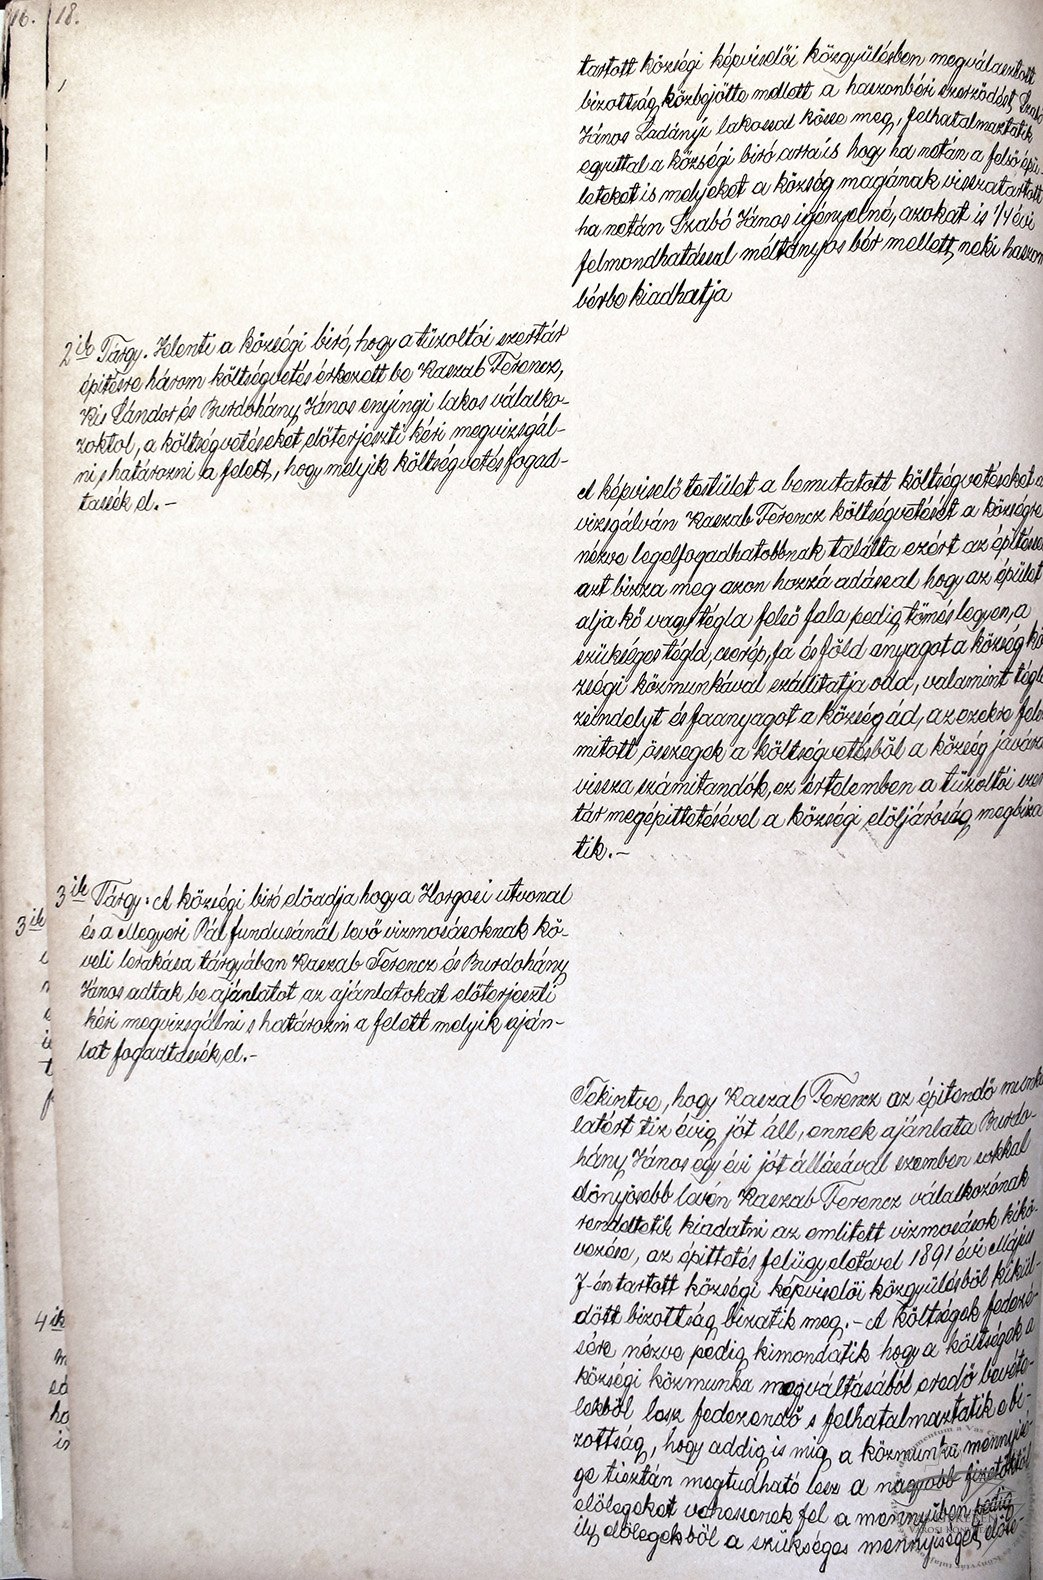 16.
18.
tartott községi képviselői közgyülésben megválasztott
bizottság közbejötte mellett a haszonbéri szerződést Szabó
János Ladányi lakossal kösse meg, felhatalmaztatik
egyuttal a községi biró arra is hogy ha netán a felső épü-
leteket is melyeket a község magának visszatartott
ha netán Szabó János igényelné, azokat is 1/4 évi
felmondhatással méltányos bér mellett neki haszon
bérbe kiadhatja
2ik Tárgy. Jelenti a községi biró, hogy a tüzoltói szertár
épitésre három költségvetés érkezett be Kaszab Ferencz,
Kis Sándor és Burdohány János enyingi lakos válalko-
zoktol, a költségvetéseket előterjeszti kéri megvizsgál-
ni s határozni a felett, hogy melyik költségvetés fogad-
tassék el.-
A képviselő testület a bemutatott költségvetéseket
vizsgálván Kaszab Ferencz költségvetését a községre
nézve legelfogadhatobbnak találta ezért az épitéssel
azt bizza meg azon hozzá adással hogy az épület
alja kő vagy tégla felső fala pedig tömés legyen, a
szükséges tégla, cserép, fa és föld anyagot a község kö
zségi közmunkával szállitatja oda, valamint tégla
zsindelyt és faanyagot a község ád, az ezekre felszá
mitott összegek a költségvetésből a község javára
vissza számitandók, ez értelemben a tüzoltói szer
tár megépittetésével a községi előljáróság megbiza
tik.-
3ik Tárgy. A községi biró előadja hogy a Horgosi utvonal
és a Megyeri Pál fundusánál levő vizmosásoknak kö-
veli lerakása tárgyában Kaszab Ferencz és Burdohány
János adtak be ajánlatot az ajánlatokat előterjeszti
kéri megvizsgálni s határozni a felett melyik aján-
lat fogadtassék el.-
3ik
4ik
Tekintve, hogy Kaszab Ferencz az épitendő munká
latért tiz évig jót áll, ennek ajánlata Burdo-
hány János egy évi jót állásával szemben sokkal
előnyösebb levén Kaszab Ferencz válalkozónak
rendeltetik kiadatni az emlitett vizmosások kikö-
vezése, az épittetés felügyeletével 1891 évi Május
7-én tartott községi képviselői közgyülésből kikül-
dött bizottság bizatik meg.- A költségek fedeze-
sére nézve pedig kimondatik hogy a költségek a
községi közmunka megváltásából eredő bevéte-
lekből lesz fedezendő s felhatalmaztatik e bi-
zottság, hogy addig is mig a közmunka mennyisé-
ge tisztán megtudható lesz a nagyobb fizetőktől
előlegeket vehessenek fel a mennyiben pedig
ily előlegekből a szükséges mennyiséget előte-